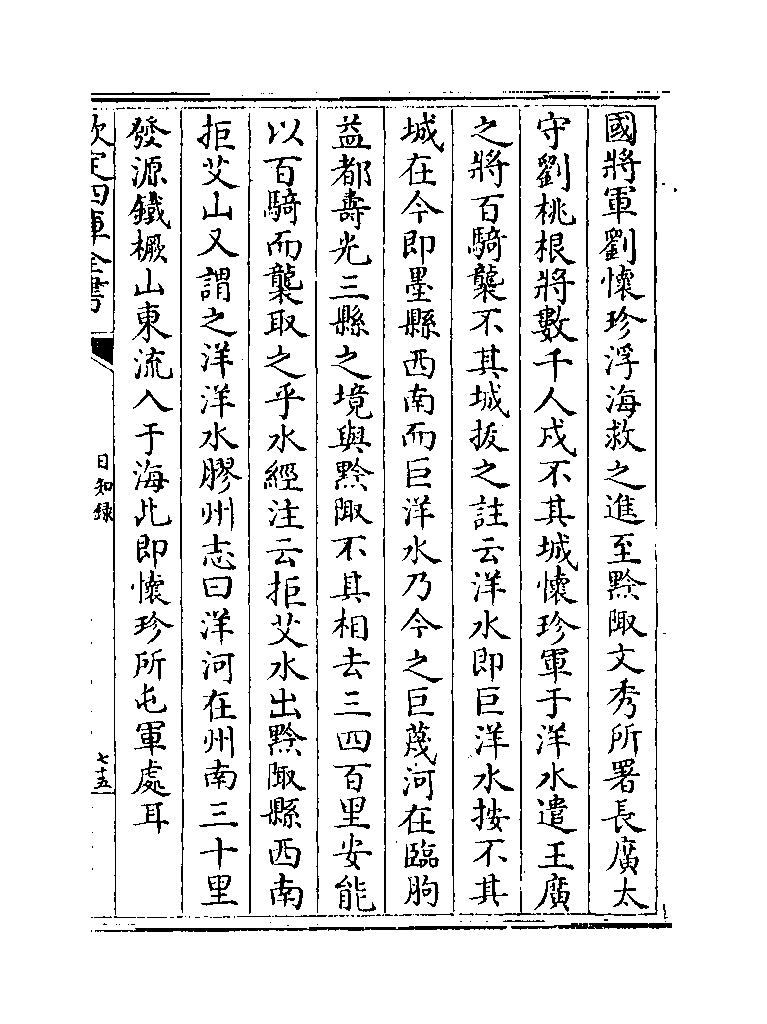 國將軍劉懷珍浮海救之進至黔陬文秀所署長廣太
守劉桃根將數千人戍不其城懷珍軍于洋水遣王廣
之將百騎襲不其城拔之註云洋水即巨洋水按不其
城在今即墨縣西南而巨洋水乃今之巨蔑河在臨朐
益都壽光三縣之境與黔陬不其相去三四百里安能
以百騎而襲取之乎水經注云拒艾水出黔陬縣西南
拒艾山又謂之洋洋水膠州志曰洋河在州南三十里
發源鐵橛山東流入于海此即懷珍所屯軍處耳
欽定四庫全書
日知錄
七十五